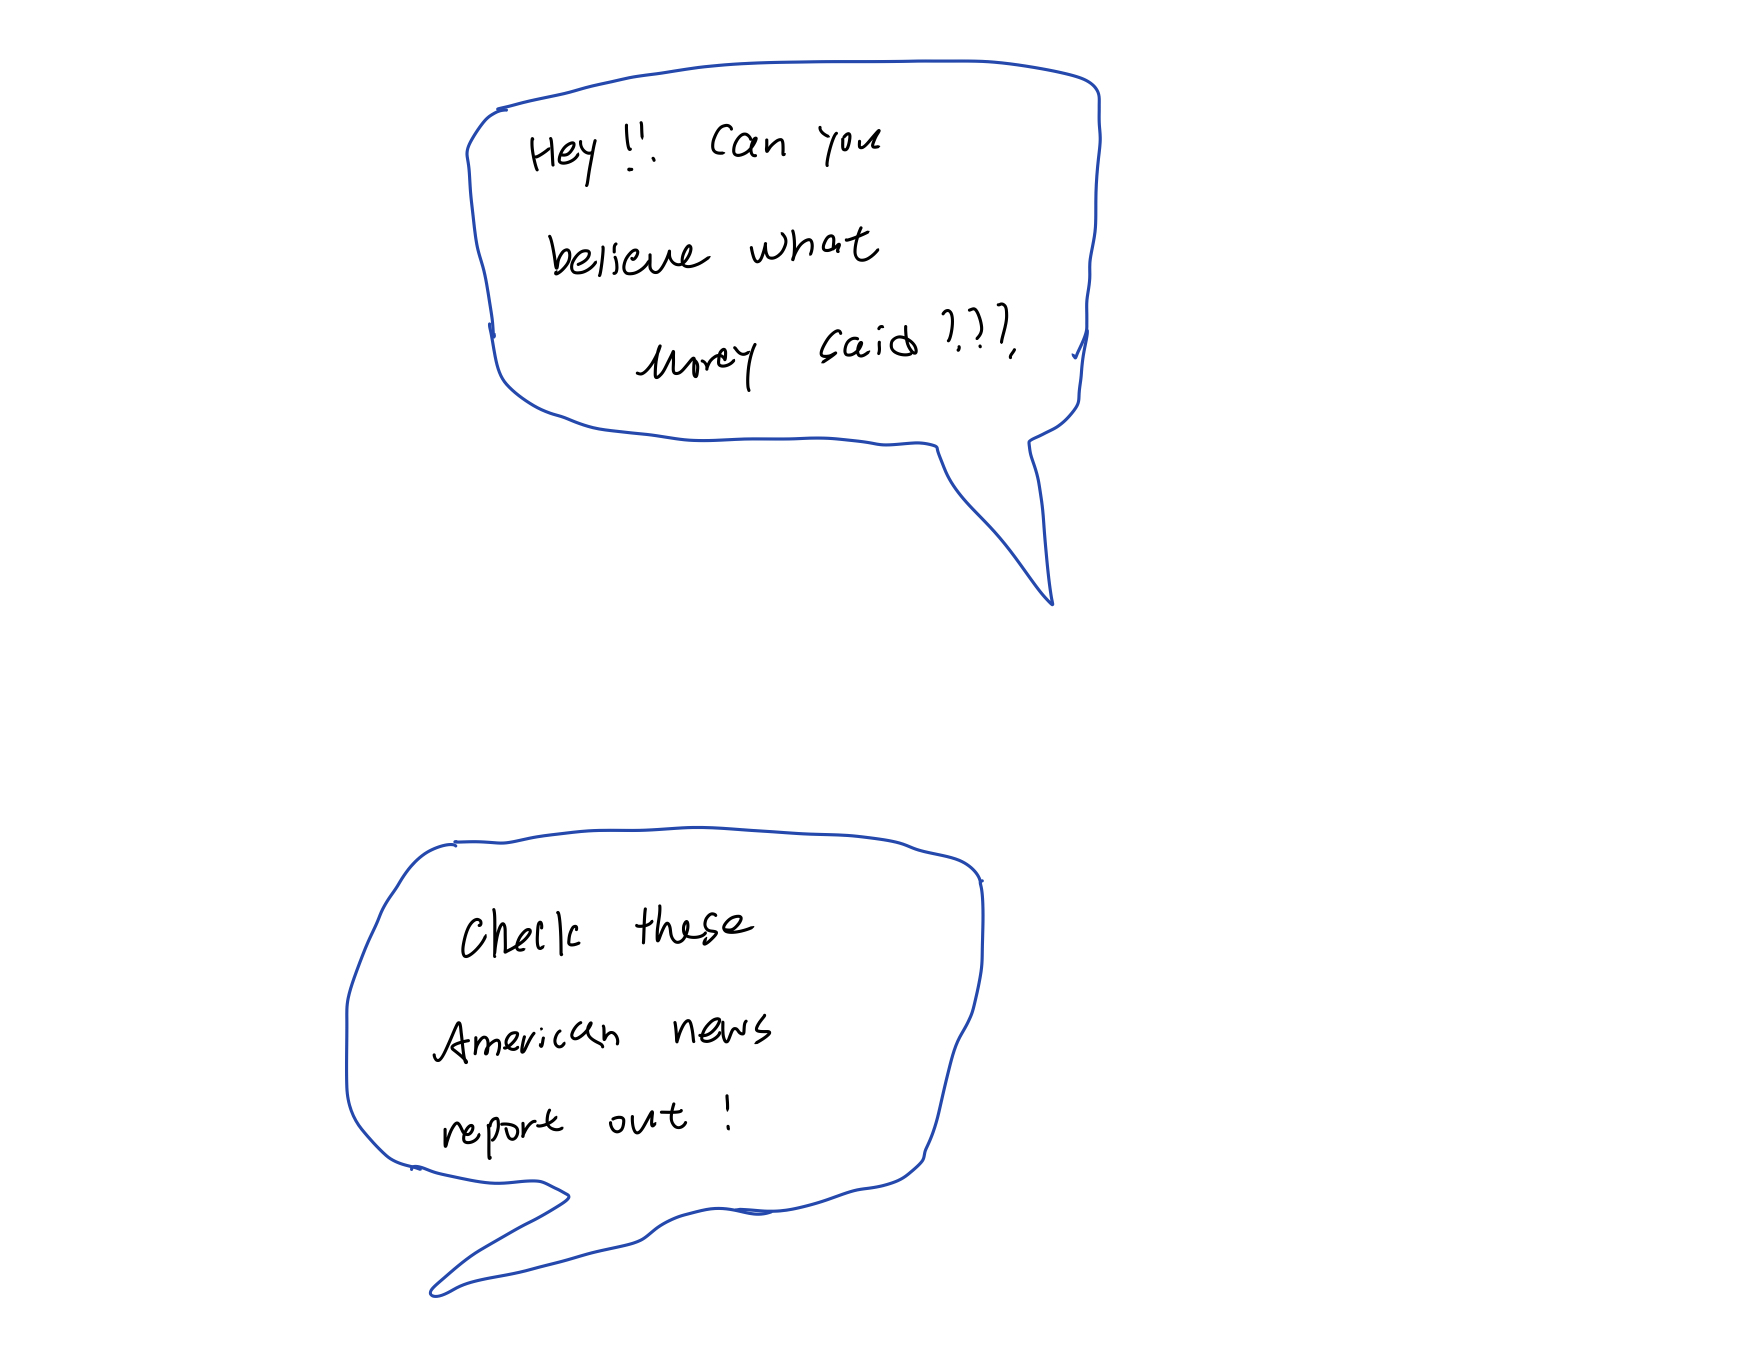 Hey!!. Can you
believe what
Morey said???,
Check these
American news
report out!